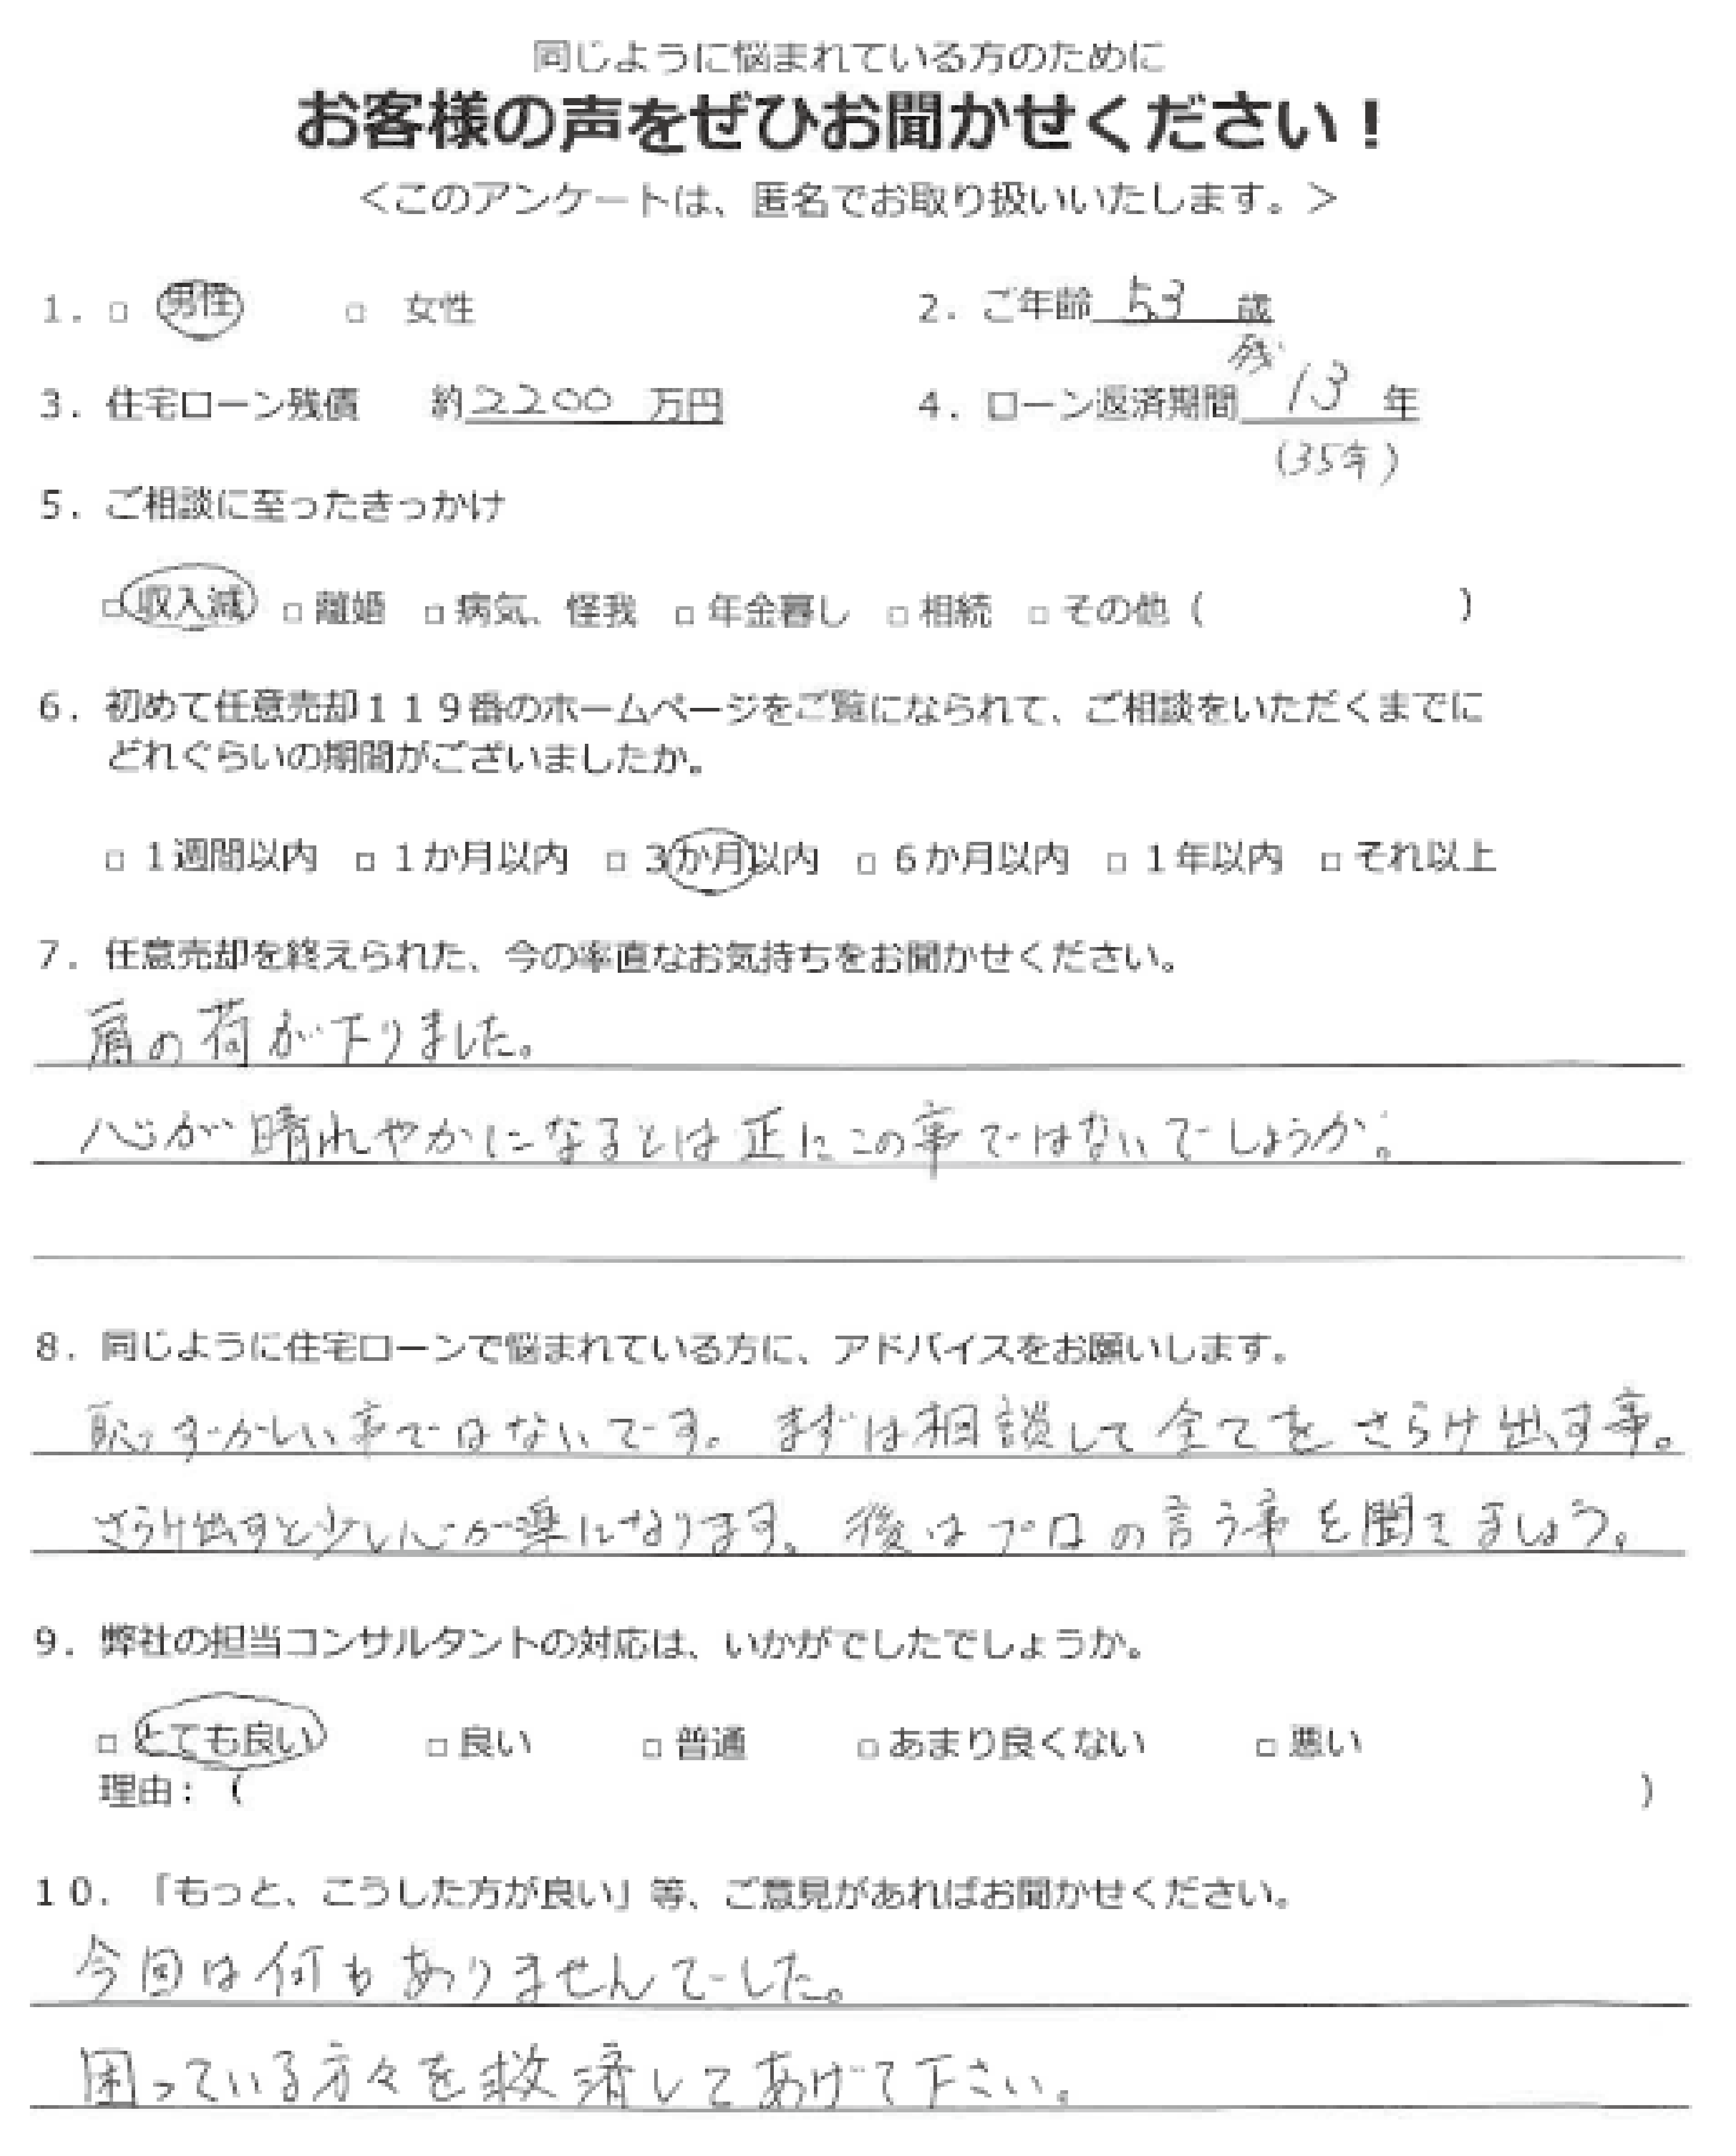 同じように悩まれている方のために
お客様の声をぜひお聞かせください！
＜このアンケートは、匿名でお取り扱いいたします。＞
1. □ 男性 □ 女性 2. ご年齢 53 歳
3. 住宅ローン残債 約2200 万円 4. ローン返済期間 残 13 年
(35年)
5. ご相談に至ったきっかけ
□ 収入減 □ 離婚 □ 病気、怪我 □ 年金暮し □ 相続 □ その他 ( )
6. 初めて任意売却119番のホームページをご覧になられて、ご相談をいただくまでに
どれぐらいの期間がございましたか。
□ 1週間以内 □ 1か月以内 □ 3か月以内 □ 6か月以内 □ 1年以内 □ それ以上
7. 任意売却を終えられた、今の率直なお気持ちをお聞かせください。
肩の荷が下りました。
心が晴れやかになるとは正にこの事ではないでしょうか。
8. 同じように住宅ローンで悩まれている方に、アドバイスをお願いします。
恥ずかしい事ではないです。まずは相談して全てをさらけ出す事。
さらけ出すと少し心が楽になります。後はプロの言う事を聞きましょう。
9. 弊社の担当コンサルタントの対応は、いかがでしたでしょうか。
□ とても良い □ 良い □ 普通 □ あまり良くない □ 悪い
理由： ( )
10. 「もっと、こうした方が良い」等、ご意見があればお聞かせください。
今回は何もありませんでした。
困っている方々を救済してあげて下さい。